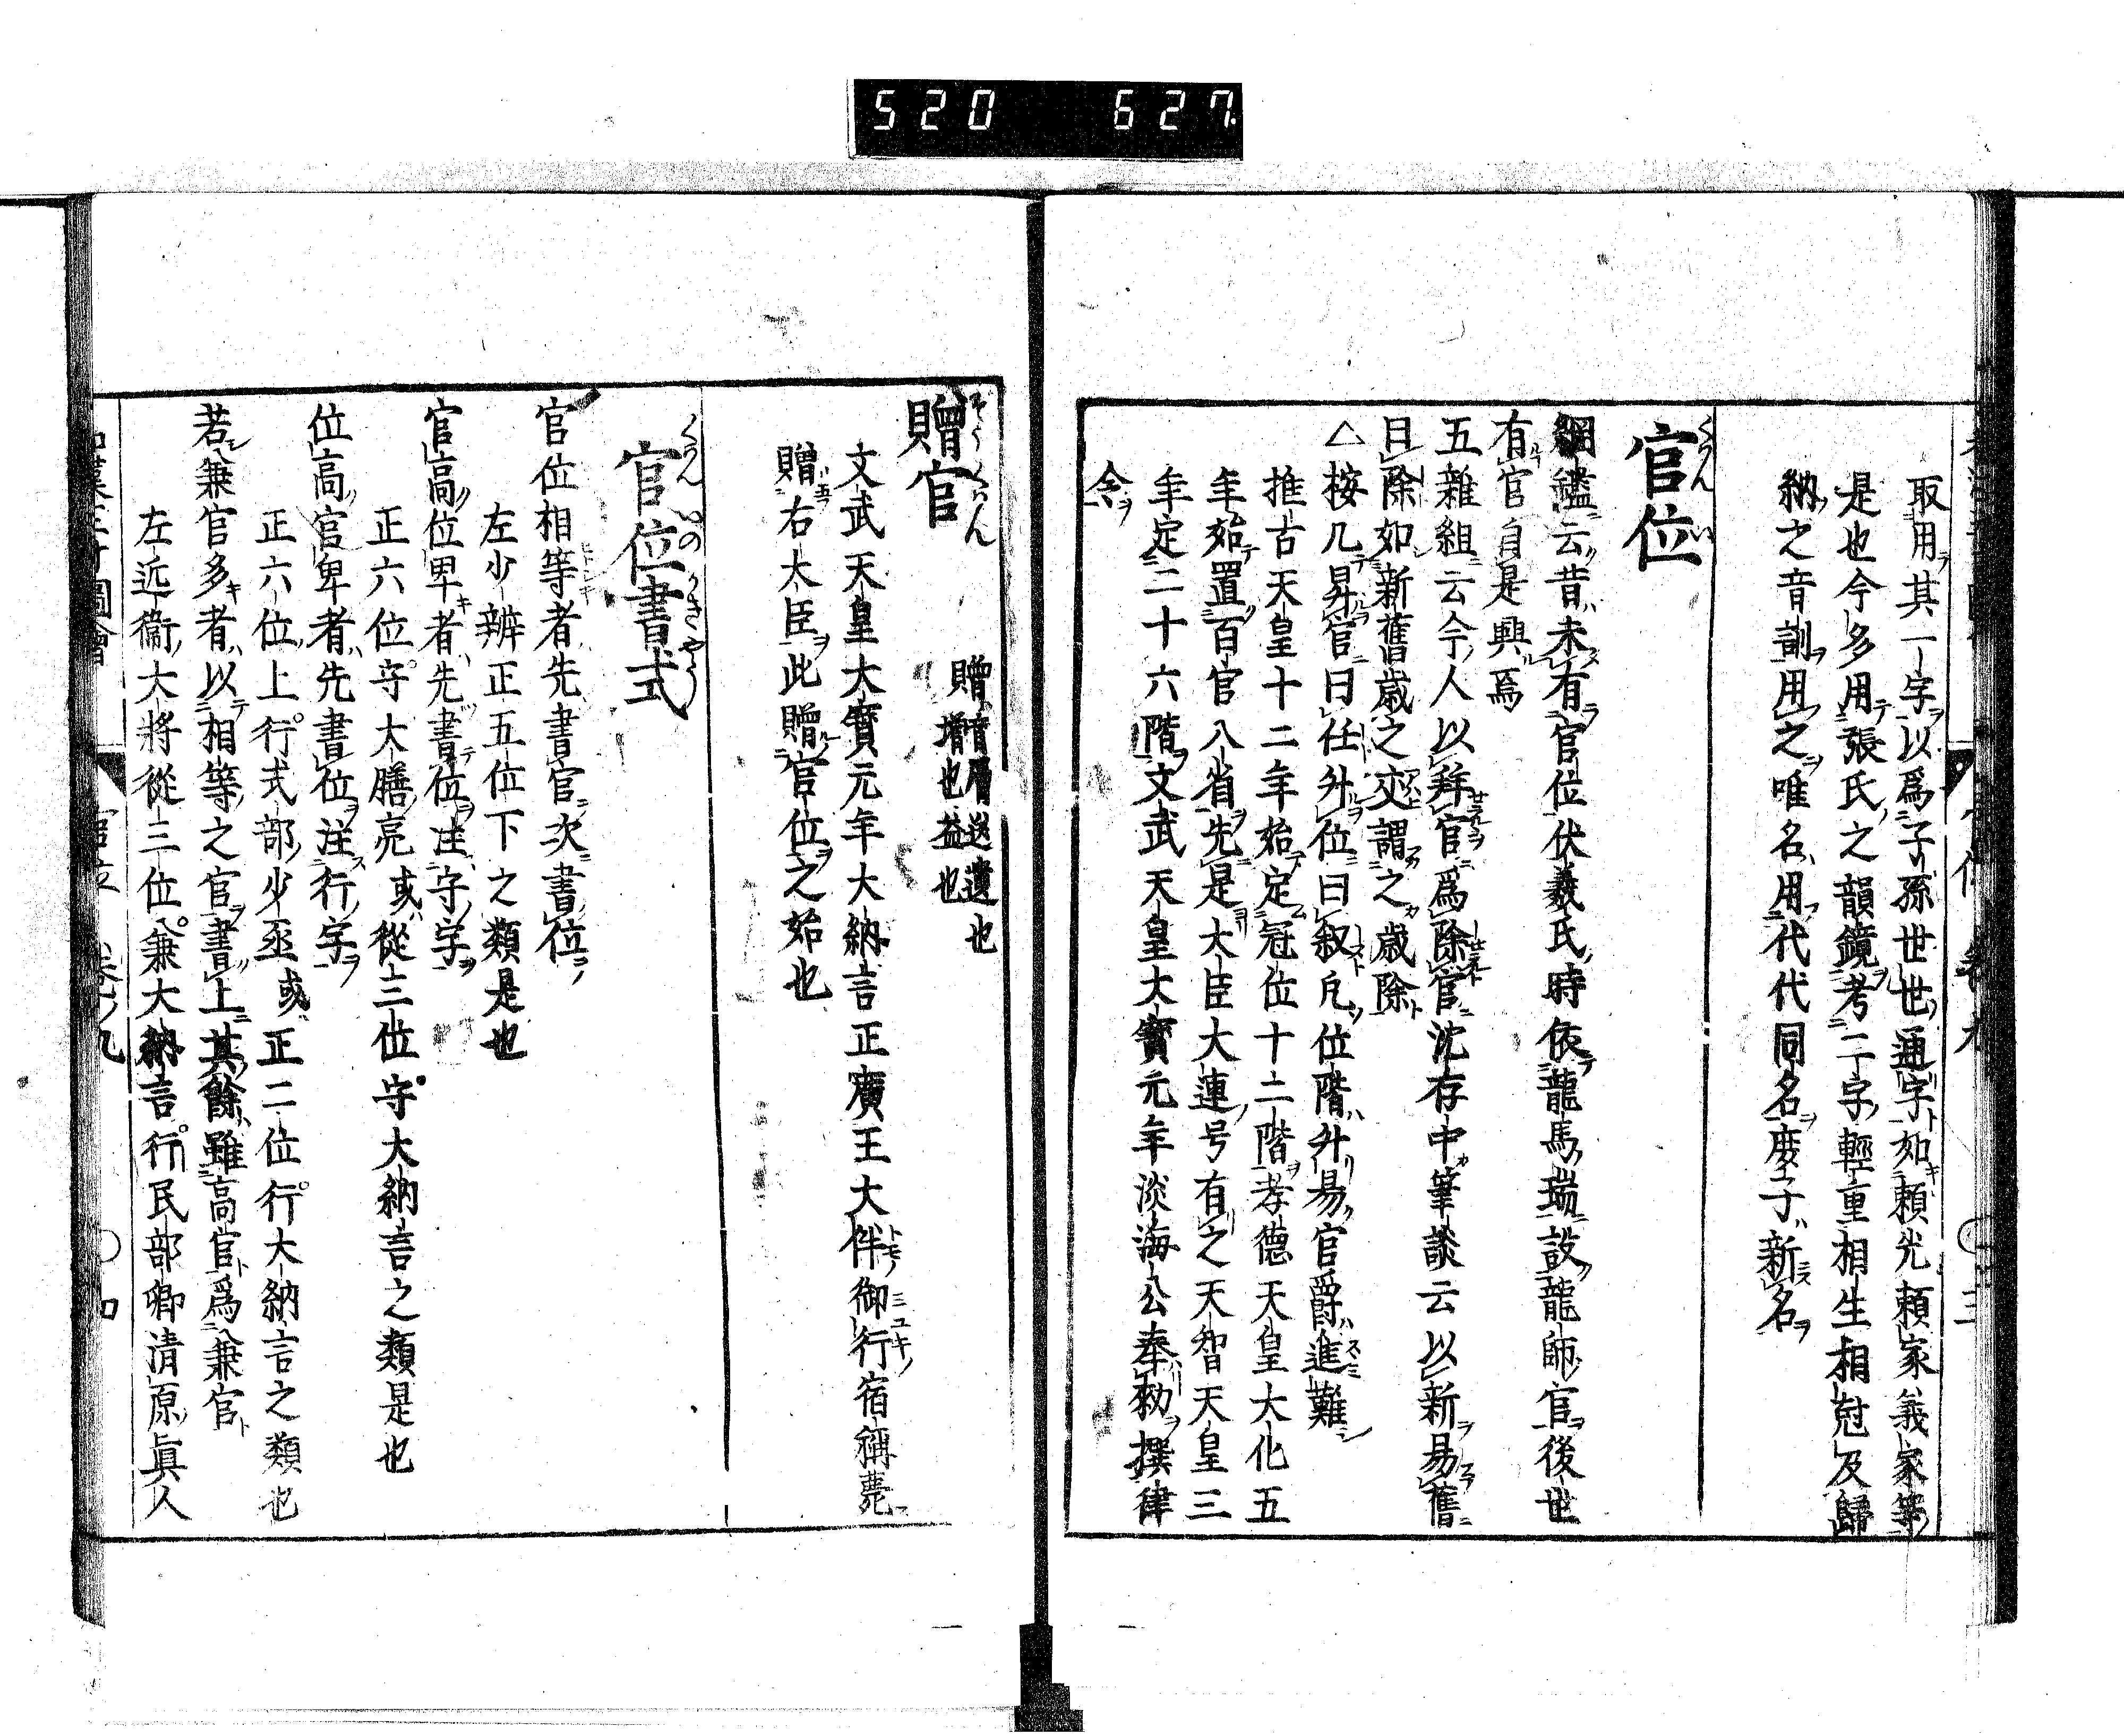 520 627
取用其一字以爲子孫世世通字如賴光賴家義家等
是也今多用張氏之韻鏡考二字輕重相生相尅及歸
納之音訓用之唯名用代代同名庶子新名
官位
綱鑑云昔未有官位伏羲氏時依龍馬瑞設龍師官後世
有官自是興焉
五雜組云今人以拜官爲除官沈存中筆談云以新易舊
曰除如新舊歲之交謂之歲除
△按凡昇官曰任升位曰叙凡位階升易官爵進難
推古天皇十二年始定冠位十二階孝德天皇大化五
年始置百官八省先是大臣大連号有之天智天皇三
年定二十六階文武天皇大寶元年淡海公奉勅撰律
令
贈官
贈音層送遺也
增也益也
文武天皇大寶元年大納言正廣王大伴御行宿稱薨
贈右大臣此贈官位之始也
官位書式
官位相等者先書官次書位
左少辨正五位下之類是也
官高位卑者先書位注守字
正六位守大膳亮或從三位守大納言之類是也
位高官卑者先書位注行字
正六位上行式部少丞或正二位行大納言之類也
若兼官多者以相等之官書上其餘雖高官爲兼官
左近衞大將從三位兼大納言行民部卿清原眞人